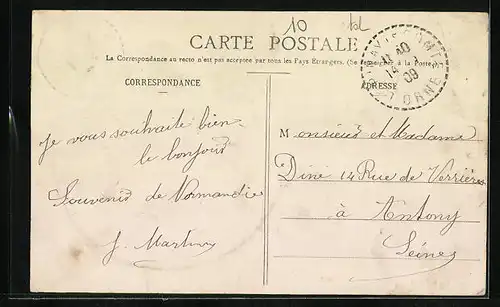 10
CARTE POSTALE
La Correspondance au recto n'est pas acceptée par tous les Pays Étrangers. (Se renseigner à la Poste)
CORRESPONDANCE
ADRESSE
11 40
14
09
ORNE
Je vous souhaite bien
le bonjour
Souvenir de Normandie
J. Martin
Monsieur et Madame
Dine 14 Rue de Verrières
à Antony
Seine